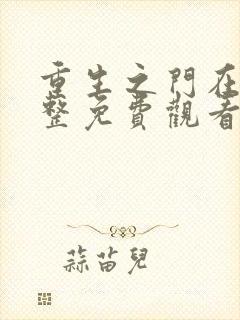 重生之門在
整免費觀看
蒜苗兒